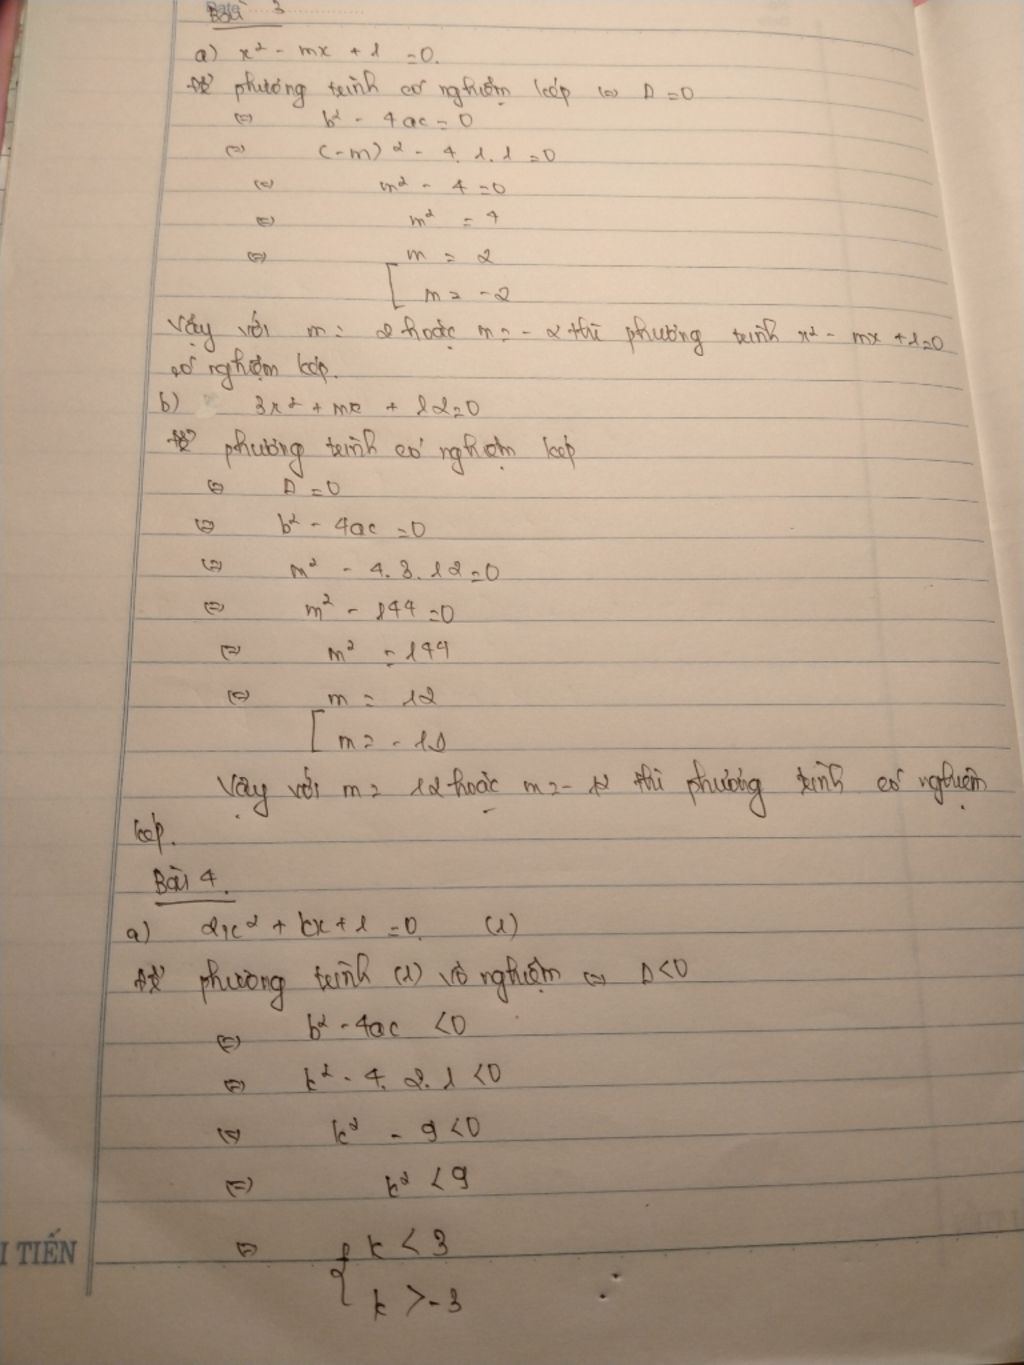 Bài 3
a) x² - mx + 1 = 0.
Để phương trình có nghiệm kép ⇔ Δ = 0
⇔ b² - 4ac = 0
⇔ (-m)² - 4.1.1 = 0
⇔ m² - 4 = 0
⇔ m² = 4
⇔ [ m = 2
m = -2
Vậy với m = 2 hoặc m = -2 thì phương trình x² - mx + 1 = 0
có nghiệm kép.
b) 3x² + mx + 12 = 0
Để phương trình có nghiệm kép
⇔ Δ = 0
⇔ b² - 4ac = 0
⇔ m² - 4.3.12 = 0
⇔ m² - 144 = 0
⇔ m² = 144
⇔ [ m = 12
m = -12
Vậy với m = 12 hoặc m = -12 thì phương trình có nghiệm
kép.
Bài 4.
a) 2x² + kx + 1 = 0 (1)
Để phương trình (1) vô nghiệm ⇔ Δ < 0
⇔ b² - 4ac < 0
⇔ k² - 4.2.1 < 0
⇔ k² - 9 < 0
⇔ k² < 9
⇔ { k < 3
k > -3
I TIẾN